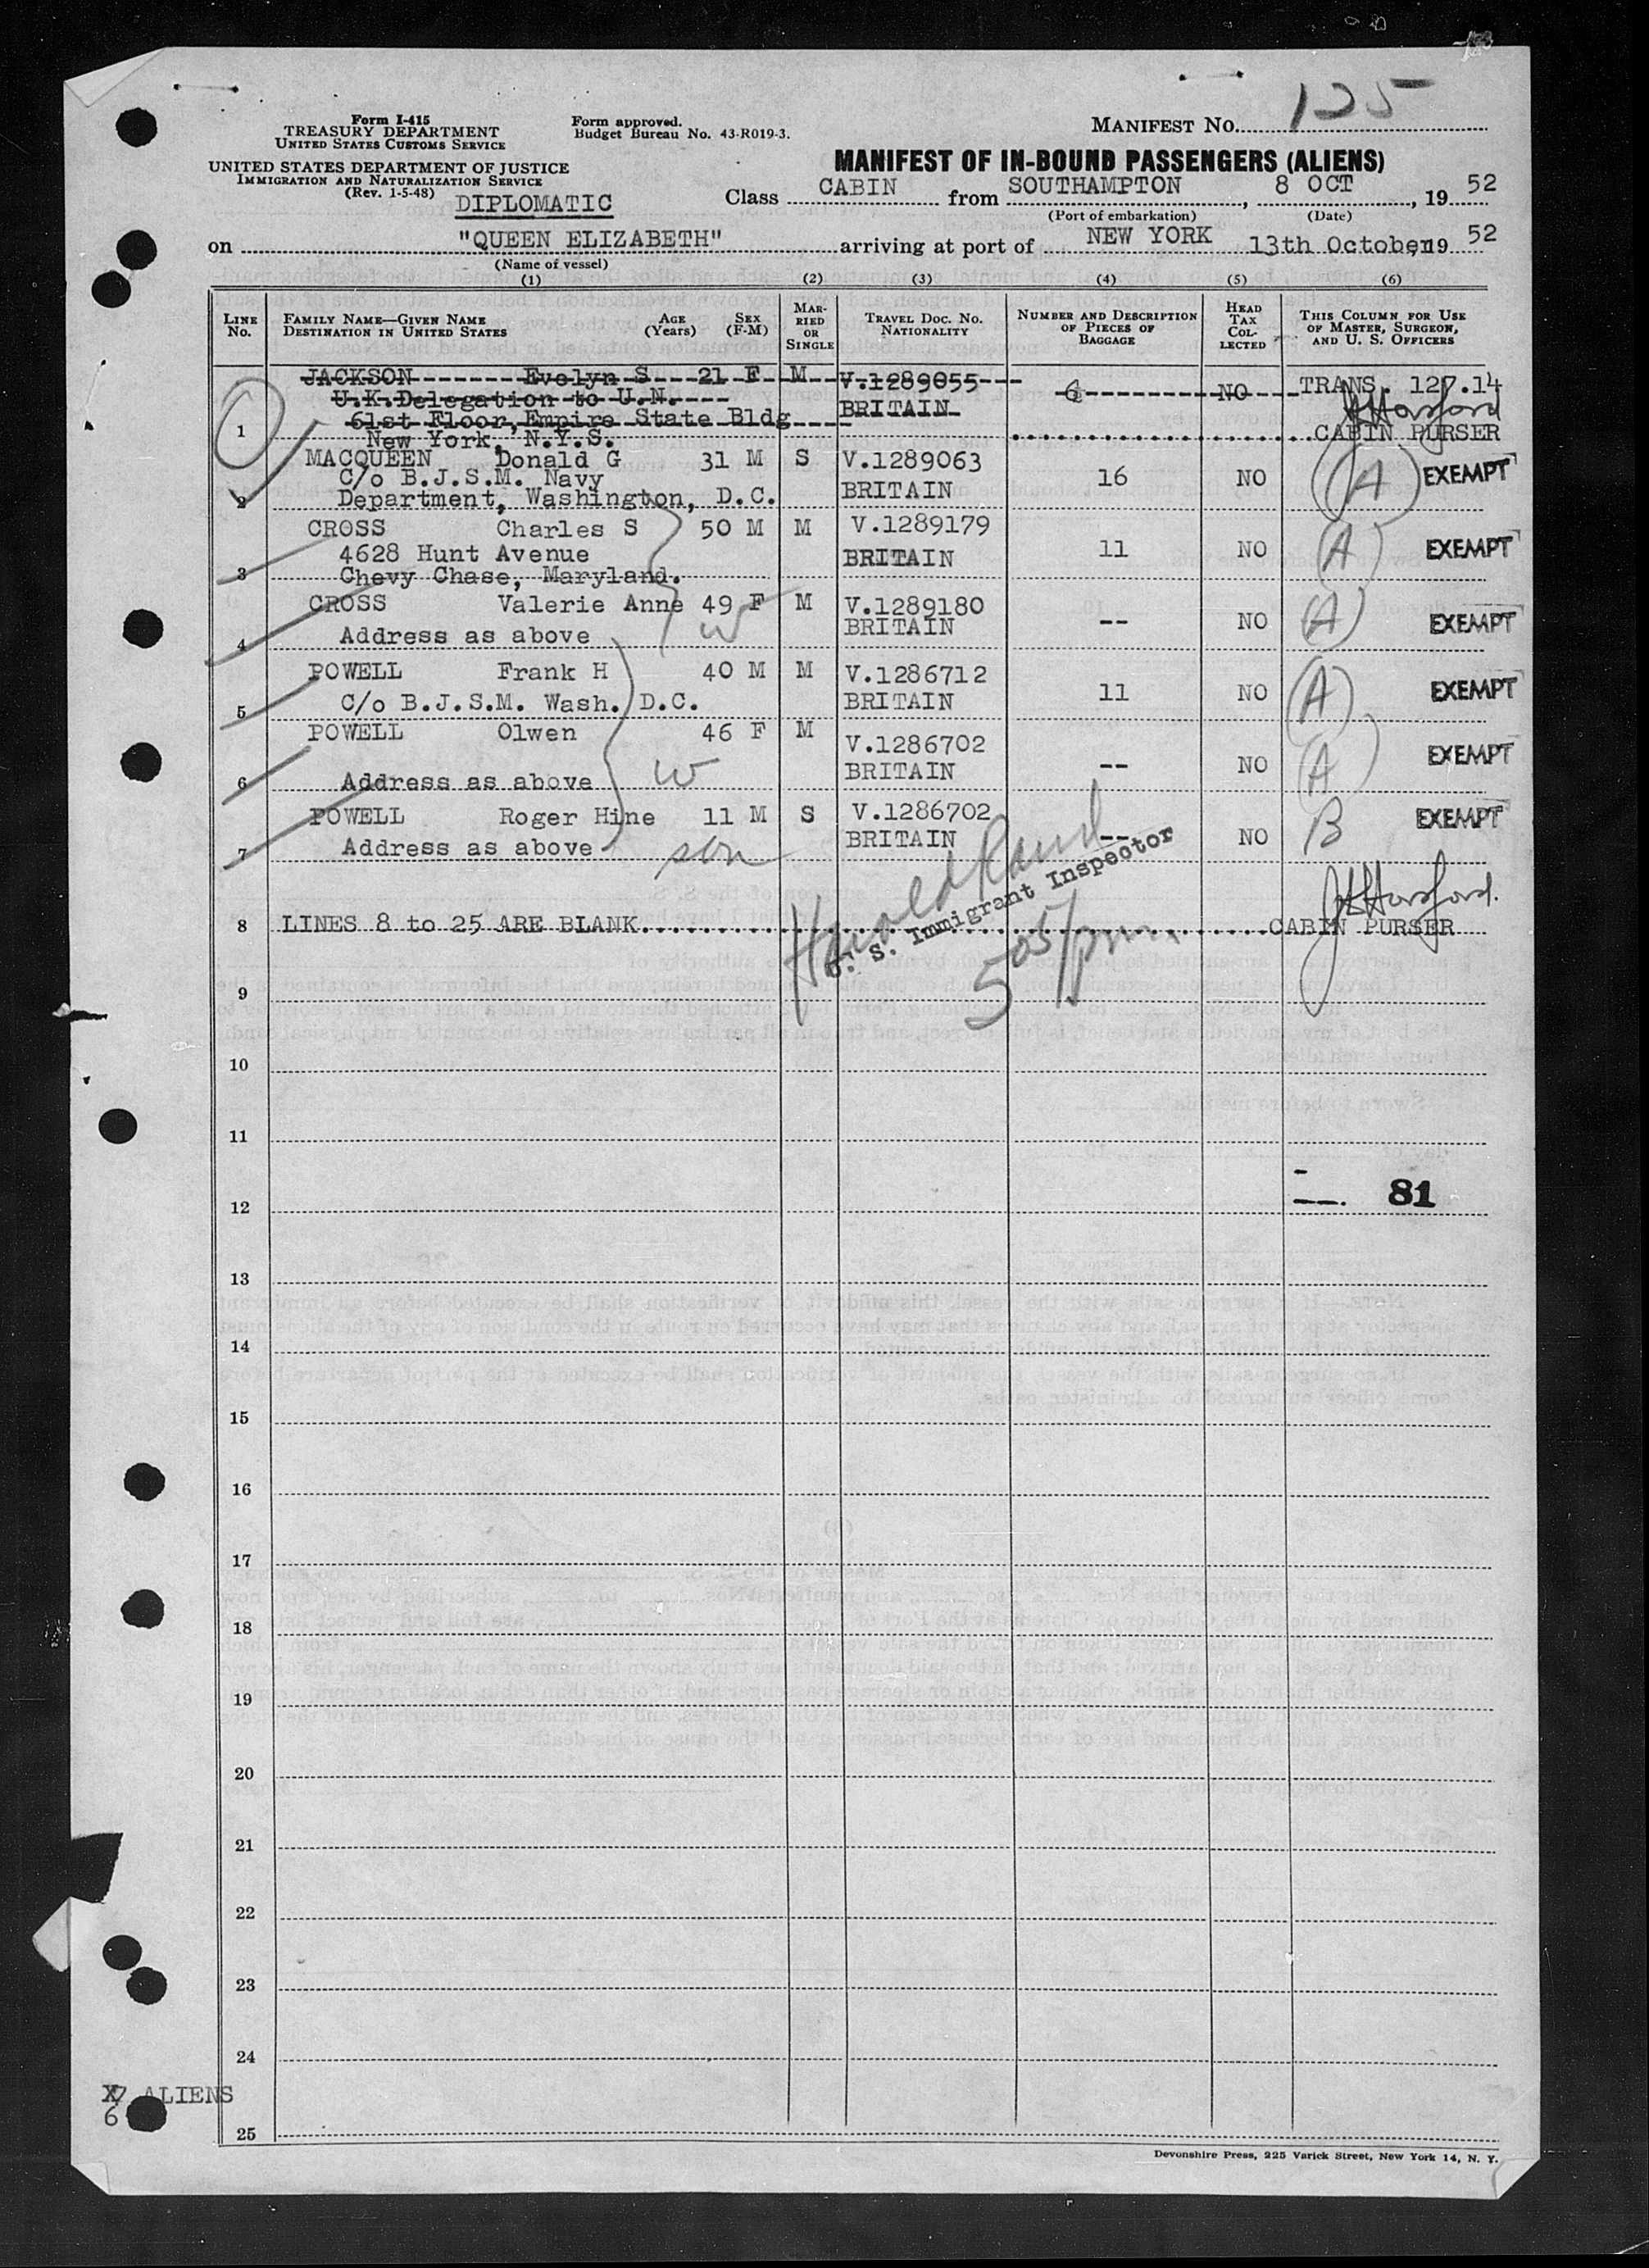 Form I-415
TREASURY DEPARTMENT
UNITED STATES CUSTOMS SERVICE
Form approved.
Budget Bureau No. 43-R019-3.
MANIFEST No. 125
UNITED STATES DEPARTMENT OF JUSTICE
IMMIGRATION AND NATURALIZATION SERVICE
(Rev. 1-5-48)
DIPLOMATIC
MANIFEST OF IN-BOUND PASSENGERS (ALIENS)
Class CABIN from SOUTHAMPTON, 8 OCT, 19 52
(Port of embarkation) (Date)
on "QUEEN ELIZABETH" arriving at port of NEW YORK 13th October, 19 52
(Name of vessel)
(1) (2) (3) (4) (5) (6)
LINE No. FAMILY NAME—GIVEN NAME DESTINATION IN UNITED STATES AGE (Years) SEX (F-M) MARRIED OR SINGLE TRAVEL DOC. NO. NATIONALITY NUMBER AND DESCRIPTION OF PIECES OF BAGGAGE HEAD TAX COLLECTED THIS COLUMN FOR USE OF MASTER, SURGEON, AND U. S. OFFICERS
JACKSON Evelyn S 21 F M V.1289055 NO TRANS. 127.14
U.K.Delegation to U.N. BRITAIN
61st Floor, Empire State Bldg
1 New York, N.Y.S. CABIN PURSER
MACQUEEN Donald G 31 M S V.1289063 16 NO (A) EXEMPT
C/o B.J.S.M. Navy BRITAIN
2 Department, Washington, D.C.
CROSS Charles S 50 M M V.1289179 11 NO (A) EXEMPT
4628 Hunt Avenue BRITAIN
3 Chevy Chase, Maryland.
CROSS Valerie Anne 49 F M V.1289180 -- NO (A) EXEMPT
4 Address as above W BRITAIN
POWELL Frank H 40 M M V.1286712 11 NO (A) EXEMPT
5 C/o B.J.S.M. Wash. D.C. BRITAIN
POWELL Olwen 46 F M V.1286702 -- NO (A) EXEMPT
6 Address as above W BRITAIN
POWELL Roger Hine 11 M S V.1286702 -- NO B EXEMPT
7 Address as above son BRITAIN
U. S. Immigrant Inspector
505/pm.
8 LINES 8 to 25 ARE BLANK. CABIN PURSER
9
10
11
12 81
13
14
15
16
17
18
19
20
21
22
23
24
X7 ALIENS
6
25
Devonshire Press, 225 Varick Street, New York 14, N. Y.